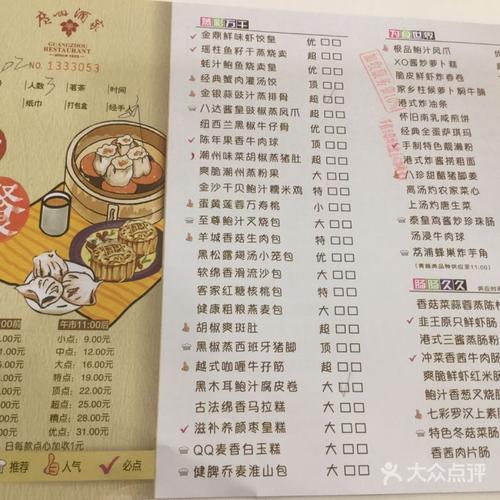 广州酒家
GUANGZHOU
RESTAURANT
SINCE 1935
NO. 1333053
人数 3 茗茶 时间
纸巾 打包盒 经手人
餐
00前 午市11:00后
.00元 小点: 9.00元
.00元 中点: 12.00元
.00元 大点: 16.00元
.00元 特点: 18.00元
.00元 顶点: 22.00元
.00元 超点: 25.00元
.00元 精点: 28.00元
.00元 优点: 31.00元
日每款点心加收1元
推荐 人气 必点
蒸彩万千
金鼎鲜味虾饺皇 优
瑶柱鱼籽干蒸烧卖 超
蚝汁鲍鱼烧卖皇 优
经典蟹肉灌汤饺 顶
金银蒜豉汁蒸排骨 超
八达酱皇豉椒蒸凤爪 超
纽西兰黑椒牛仔骨 优
陈年果香牛肉球 顶
潮州味菜胡椒蒸猪肚 超
爽脆潮州蒸粉果 大
金沙干贝鲍汁糯米鸡 特
蛋黄莲蓉万寿桃 小
至尊鲍汁叉烧包 大
羊城香菇生肉包 特
黑松露爆汤小笼包 优
软绵香滑流沙包 大
客家红糖核桃包 特
健康粗粮燕麦包 大
胡椒爽斑肚 超
黑椒蒸西班牙猪脚 顶
越式咖喱牛仔筋 超
黑木耳鲍汁腐皮卷 大
古法绵香马拉糕 大
滋补养颜枣皇糕 大
QQ麦香白玉糕 大
健脾乔麦淮山包 大
为食世界
极品鲍汁凤爪
XO酱炒萝卜糕
脆皮鲜虾炸春卷
家乡柱侯萝卜焖牛腩
港式炸油条
怀旧南乳咸煎饼
经典全蛋萨琪玛
手制特色靓濑粉
港式炸酱捞粗面
八珍甜醋猪脚姜
高汤灼农家菜心
上汤灼唐生菜
泰皇鸡酱炒珍珠肠
汤浸牛肉球
荔浦蜂巢炸芋角
肠肠久久
香菇菜蒜蓉蒸陈
韭王原只鲜虾肠
港式三酱蒸肠粉
冲菜香茜牛肉肠
爽脆鲜虾红米肠
鲍汁香葱叉烧肠
七彩罗汉上素
特色冬菇菜肠
香酱肉片肠
大众点评